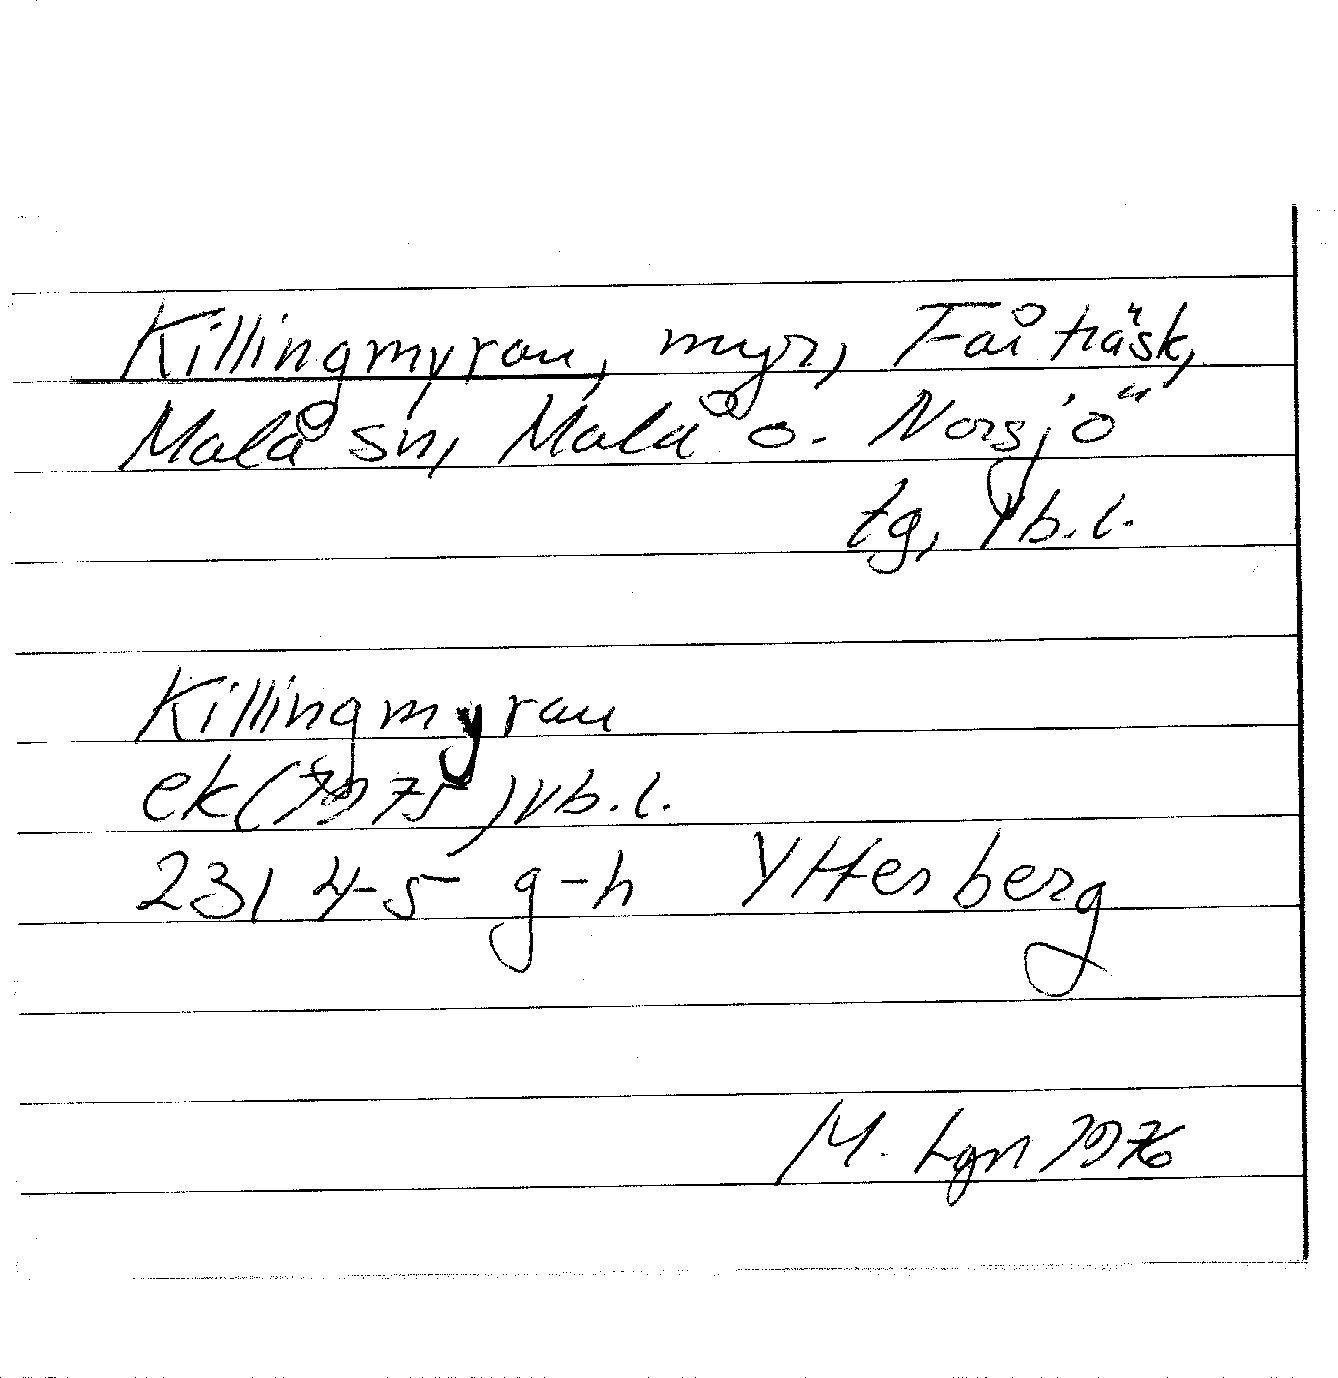 Killingmyran, myr, Fårträsk,
Malå sn, Malå o. Norsjö
tg, Vb.l.
Killingmyran
ek (1975) Vb.l.
231 4-5 g-h Ytterberg
M. Lgn 1976